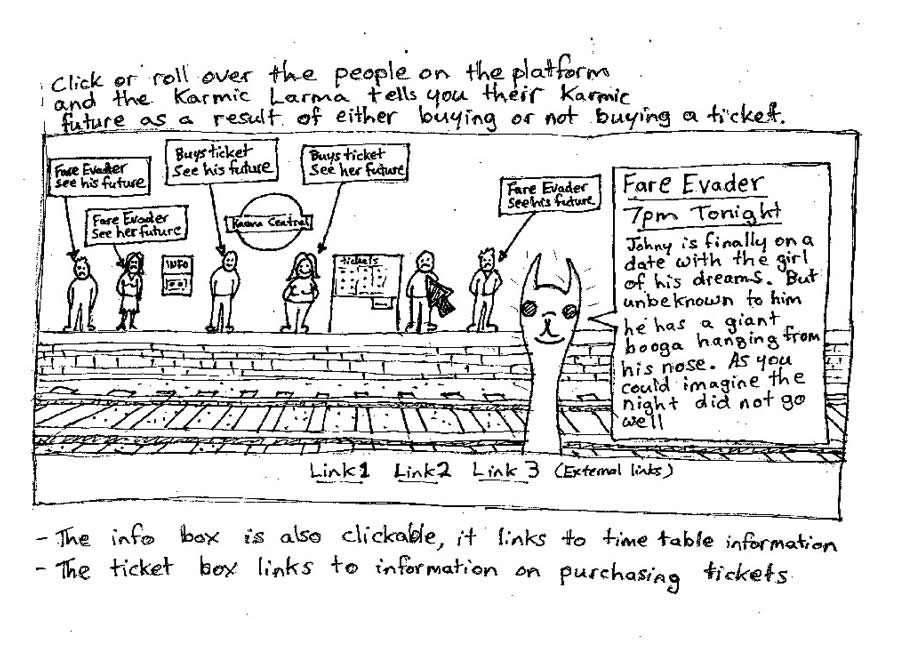 Click or roll over the people on the platform
and the Karmic Larma tells you their Karmic
future as a result of either buying or not buying a ticket.
Fare Evader
See his future
Fare Evader
See her future
Buys ticket
See his future
Buys ticket
See her future
Fare Evader
See his future
Karma Central
INFO
tickets
Fare Evader
7pm Tonight
Johny is finally on a
date with the girl
of his dreams. But
unbeknown to him
he has a giant
booga hanging from
his nose. As you
could imagine the
night did not go
well
Link1 Link2 Link 3 (External links)
- The info box is also clickable, it links to time table information
- The ticket box links to information on purchasing tickets